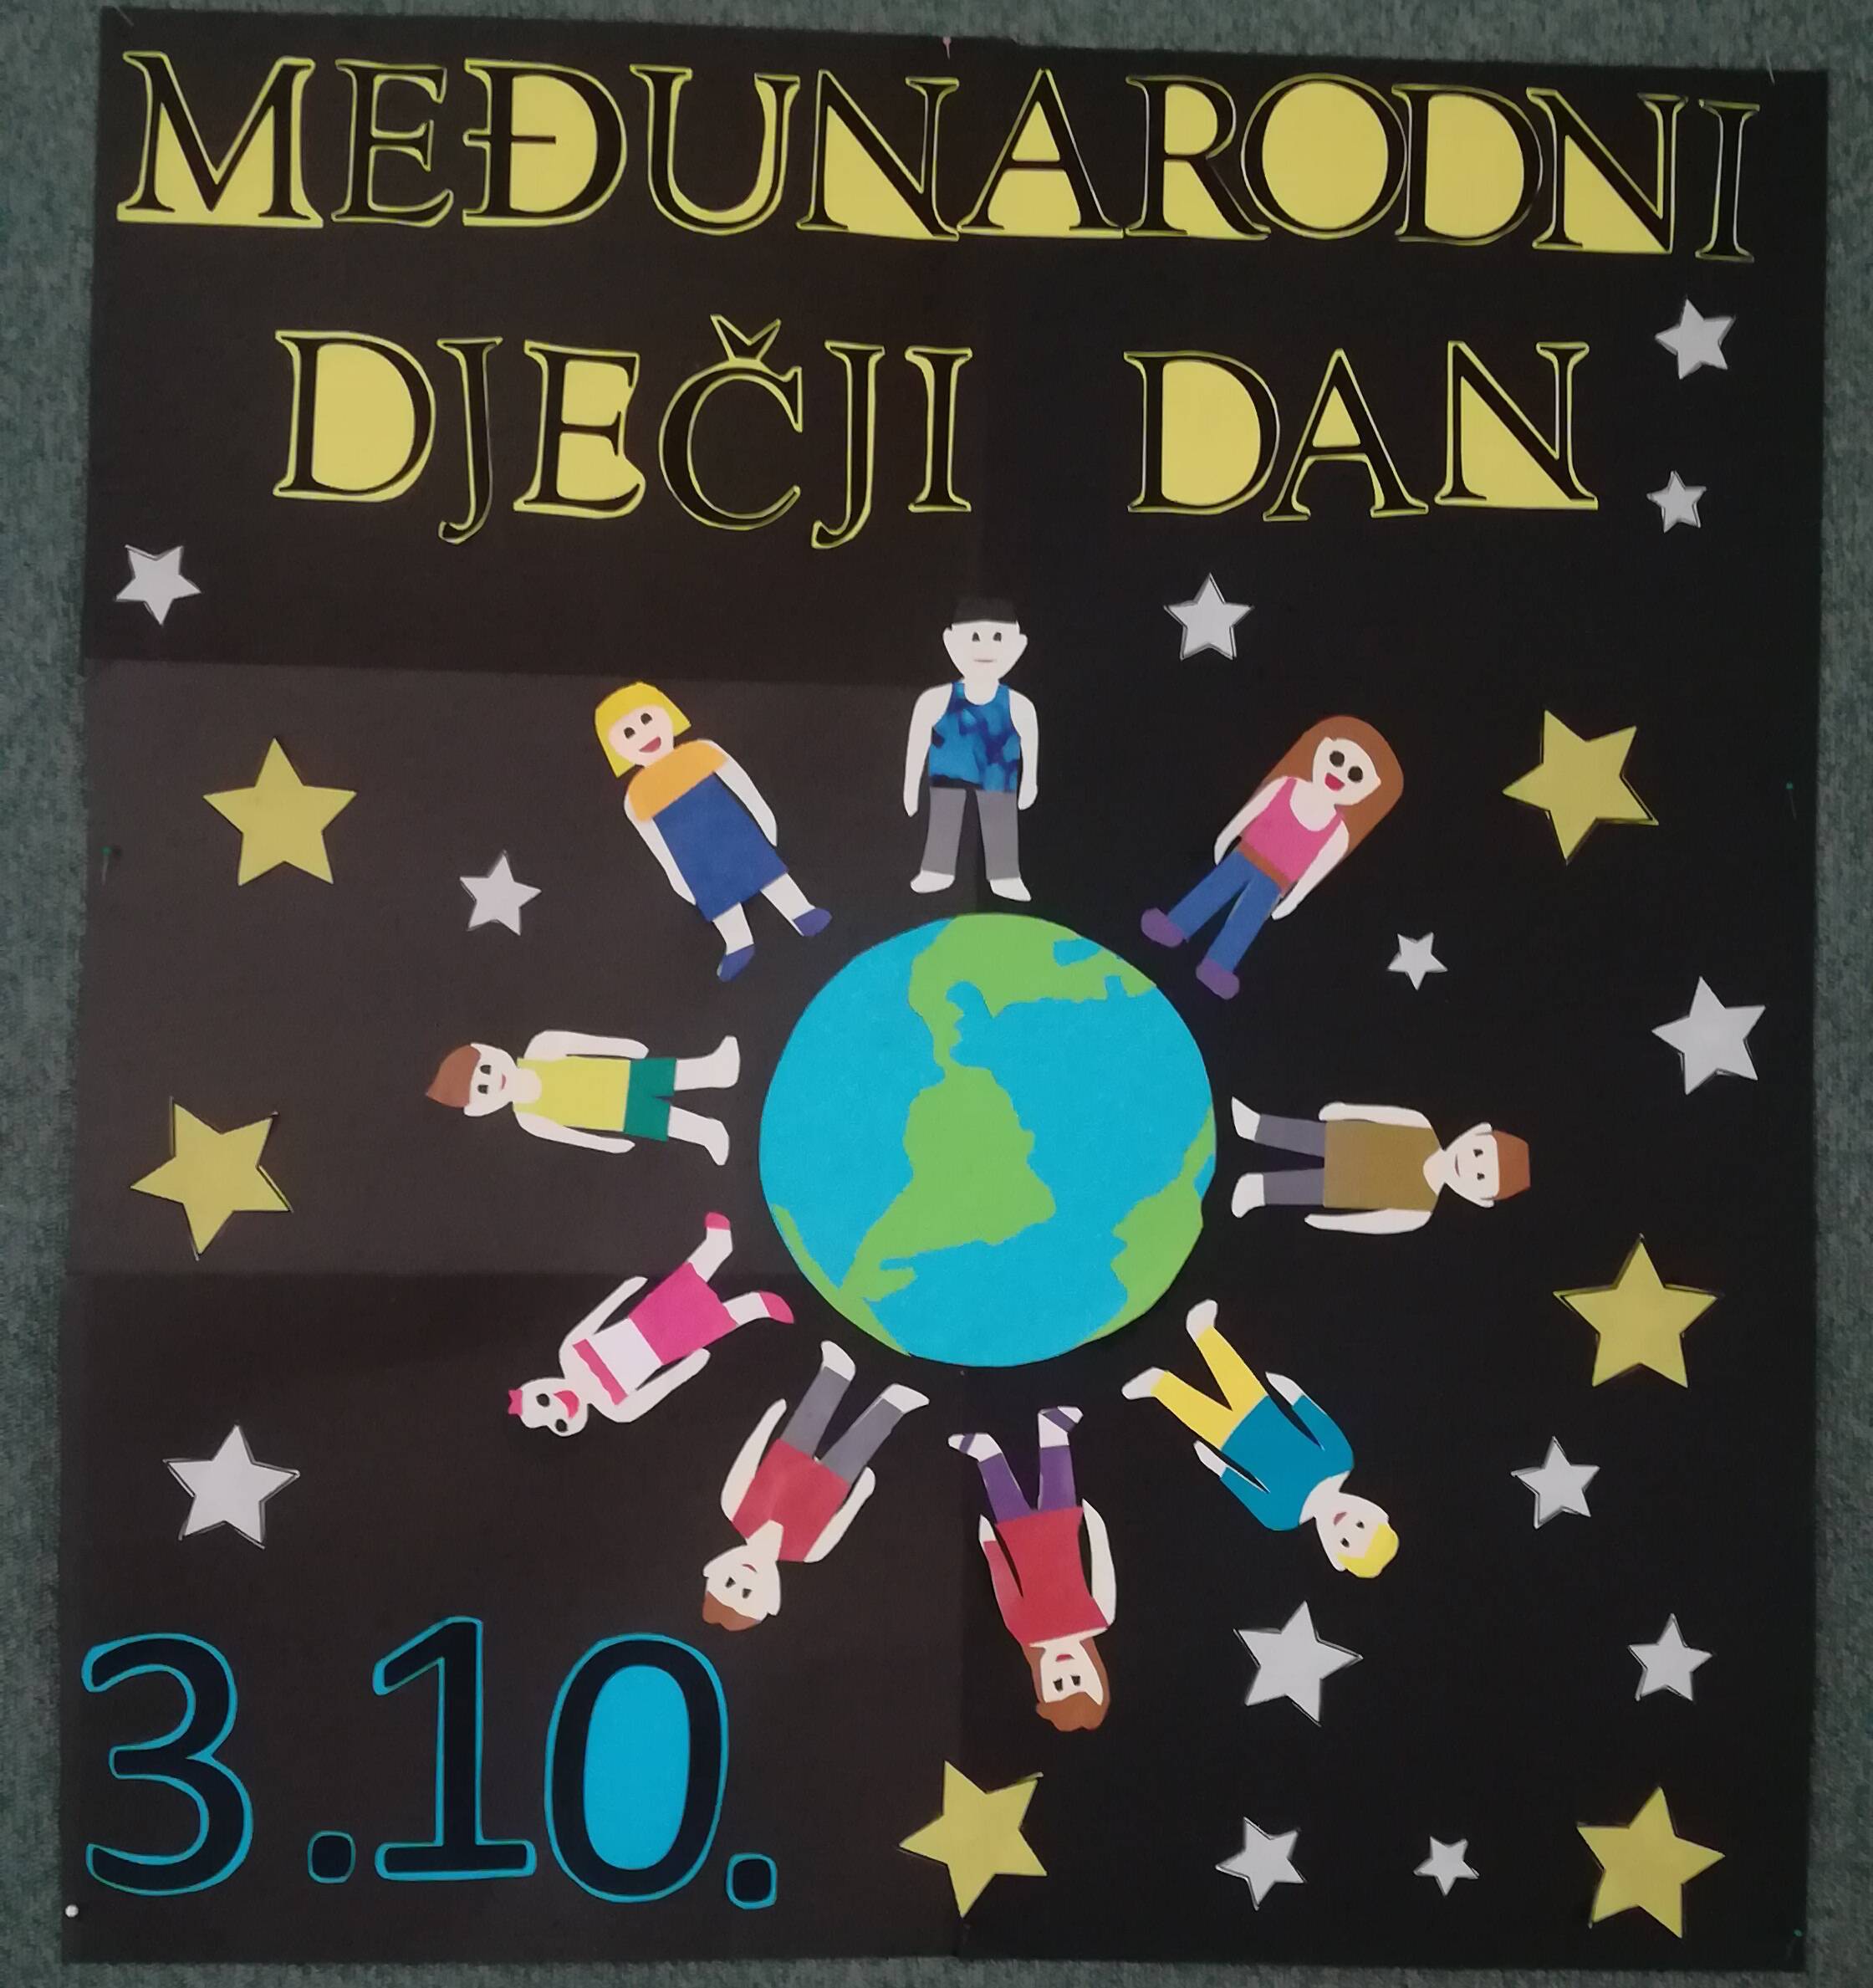 MEĐUNARODNI
DJEČJI DAN
3.10.